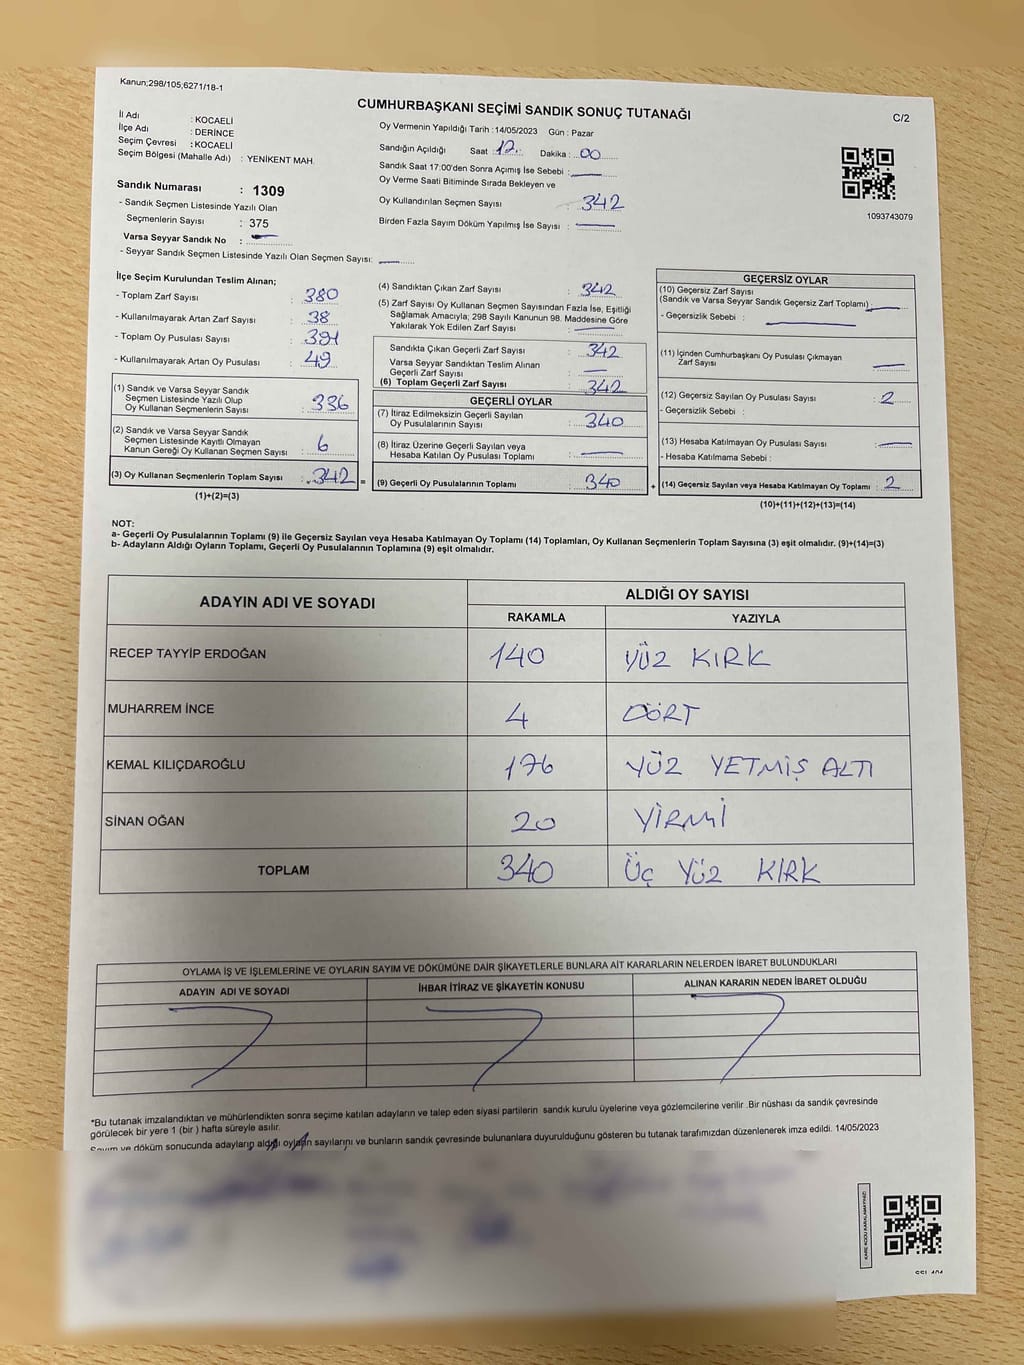 Kanun;298/105;6271/18-1
CUMHURBAŞKANI SEÇİMİ SANDIK SONUÇ TUTANAĞI
C/2
İl Adı : KOCAELİ
İlçe Adı : DERİNCE
Seçim Çevresi : KOCAELİ
Seçim Bölgesi (Mahalle Adı) : YENİKENT MAH.
Sandık Numarası : 1309
- Sandık Seçmen Listesinde Yazılı Olan
Seçmenlerin Sayısı : 375
Varsa Seyyar Sandık No :
- Seyyar Sandık Seçmen Listesinde Yazılı Olan Seçmen Sayısı:
Oy Vermenin Yapıldığı Tarih :14/05/2023 Gün : Pazar
Sandığın Açıldığı Saat : 12. Dakika : 00
Sandık Saat 17:00'den Sonra Açımış İse Sebebi :
Oy Verme Saati Bitiminde Sırada Bekleyen ve
Oy Kullandırılan Seçmen Sayısı : 342
Birden Fazla Sayım Döküm Yapılmış İse Sayısı :
1093743079
İlçe Seçim Kurulundan Teslim Alınan;
- Toplam Zarf Sayısı : 380
- Kullanılmayarak Artan Zarf Sayısı : 38
- Toplam Oy Pusulası Sayısı : 391
- Kullanılmayarak Artan Oy Pusulası : 49
(1) Sandık ve Varsa Seyyar Sandık
Seçmen Listesinde Yazılı Olup
Oy Kullanan Seçmenlerin Sayısı : 336
(2) Sandık ve Varsa Seyyar Sandık
Seçmen Listesinde Kayıtlı Olmayan
Kanun Gereği Oy Kullanan Seçmen Sayısı : 6
(3) Oy Kullanan Seçmenlerin Toplam Sayısı : 342 =
(1)+(2)=(3)
(4) Sandıktan Çıkan Zarf Sayısı : 342
(5) Zarf Sayısı Oy Kullanan Seçmen Sayısından Fazla İse, Eşitliği
Sağlamak Amacıyla; 298 Sayılı Kanunun 98. Maddesine Göre
Yakılarak Yok Edilen Zarf Sayısı :
Sandıkta Çıkan Geçerli Zarf Sayısı : 342
Varsa Seyyar Sandıktan Teslim Alınan
Geçerli Zarf Sayısı :
(6) Toplam Geçerli Zarf Sayısı : 342
GEÇERLİ OYLAR
(7) İtiraz Edilmeksizin Geçerli Sayılan
Oy Pusulalarının Sayısı : 340
(8) İtiraz Üzerine Geçerli Sayılan veya
Hesaba Katılan Oy Pusulası Toplamı :
(9) Geçerli Oy Pusulalarının Toplamı : 340 +
GEÇERSİZ OYLAR
(10) Geçersiz Zarf Sayısı
(Sandık ve Varsa Seyyar Sandık Geçersiz Zarf Toplamı) :
- Geçersizlik Sebebi :
(11) İçinden Cumhurbaşkanı Oy Pusulası Çıkmayan
Zarf Sayısı :
(12) Geçersiz Sayılan Oy Pusulası Sayısı : 2
- Geçersizlik Sebebi :
(13) Hesaba Katılmayan Oy Pusulası Sayısı :
- Hesaba Katılmama Sebebi :
(14) Geçersiz Sayılan veya Hesaba Katılmayan Oy Toplamı : 2
(10)+(11)+(12)+(13)=(14)
NOT:
a- Geçerli Oy Pusulalarının Toplamı (9) ile Geçersiz Sayılan veya Hesaba Katılmayan Oy Toplamı (14) Toplamları, Oy Kullanan Seçmenlerin Toplam Sayısına (3) eşit olmalıdır. (9)+(14)=(3)
b- Adayların Aldığı Oyların Toplamı, Geçerli Oy Pusulalarının Toplamına (9) eşit olmalıdır.
ADAYIN ADI VE SOYADI
ALDIĞI OY SAYISI
RAKAMLA YAZIYLA
RECEP TAYYİP ERDOĞAN 140 YÜZ KIRK
MUHARREM İNCE 4 DÖRT
KEMAL KILIÇDAROĞLU 176 YÜZ YETMİŞ ALTI
SİNAN OĞAN 20 YİRMİ
TOPLAM 340 ÜÇ YÜZ KIRK
OYLAMA İŞ VE İŞLEMLERİNE VE OYLARIN SAYIM VE DÖKÜMÜNE DAİR ŞİKAYETLERLE BUNLARA AİT KARARLARIN NELERDEN İBARET BULUNDUKLARI
ADAYIN ADI VE SOYADI
İHBAR İTİRAZ VE ŞİKAYETİN KONUSU
ALINAN KARARIN NEDEN İBARET OLDUĞU
*Bu tutanak imzalandıktan ve mühürlendikten sonra seçime katılan adayların ve talep eden siyasi partilerin sandık kurulu üyelerine veya gözlemcilerine verilir .Bir nüshası da sandık çevresinde
görülecek bir yere 1 (bir ) hafta süreyle asılır.
Sayım ve döküm sonucunda adayların aldığı oyların sayılarını ve bunların sandık çevresinde bulunanlara duyurulduğunu gösteren bu tutanak tarafımızdan düzenlenerek imza edildi. 14/05/2023
KARE KODU KARALAMAYINIZ!